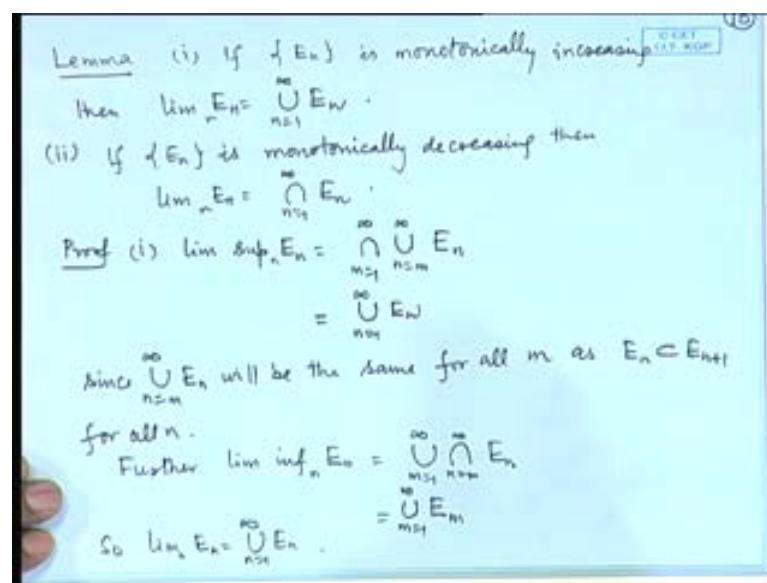 (10)
C CET
I.I.T. KGP
Lemma (i) If {En} is monotonically increasing
then lim_n En = ∞∪n=1 En .
(ii) If {En} is monotonically decreasing then
lim_n En = ∞∩n=1 En .
Proof (i) lim sup_n En = ∞∩m=1 ∞∪n=m En
= ∞∪n=1 En
since ∞∪n=m En will be the same for all m as En ⊂ En+1
for all n .
Further lim inf_n En = ∞∪m=1 ∞∩n=m En
= ∞∪m=1 Em
So lim_n En = ∞∪n=1 En .